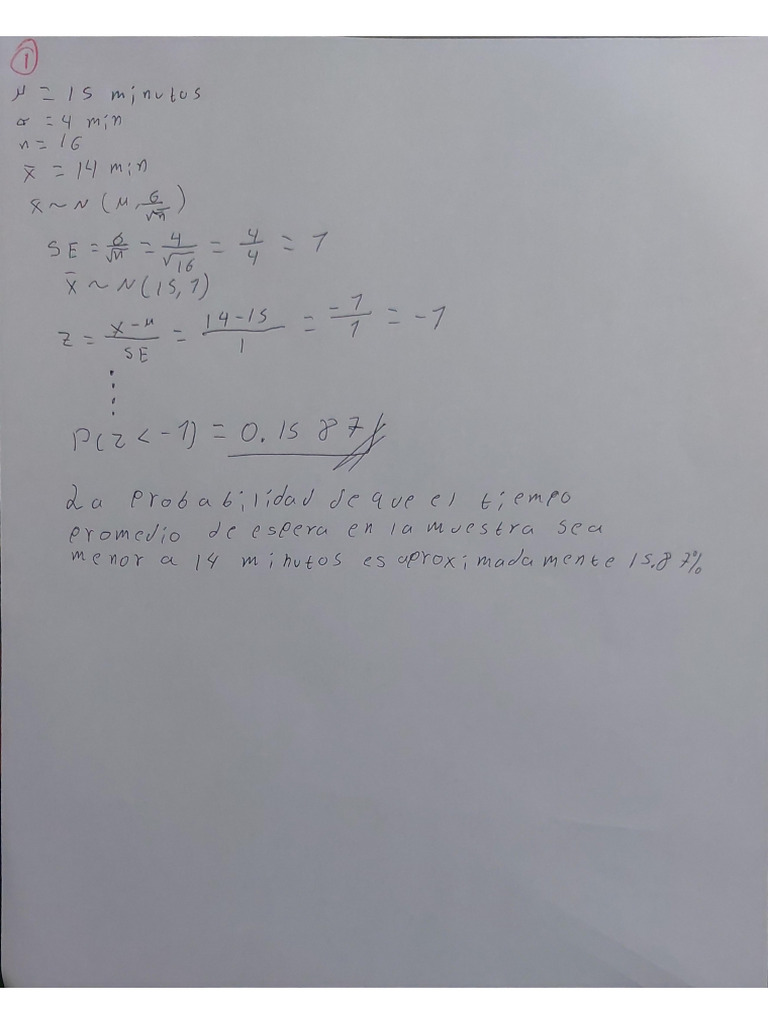 1
μ = 15 minutos
σ = 4 min
n = 16
x̄ = 14 min
x̄ ~ N (μ, σ/√n)
SE = σ/√n = 4/√16 = 4/4 = 1
x̄ ~ N(15, 1)
z = x-μ/SE = 14-15/1 = -1/1 = -1
P(z < -1) = 0.1587
La probabilidad de que el tiempo
promedio de espera en la muestra sea
menor a 14 minutos es aproximadamente 15.87%